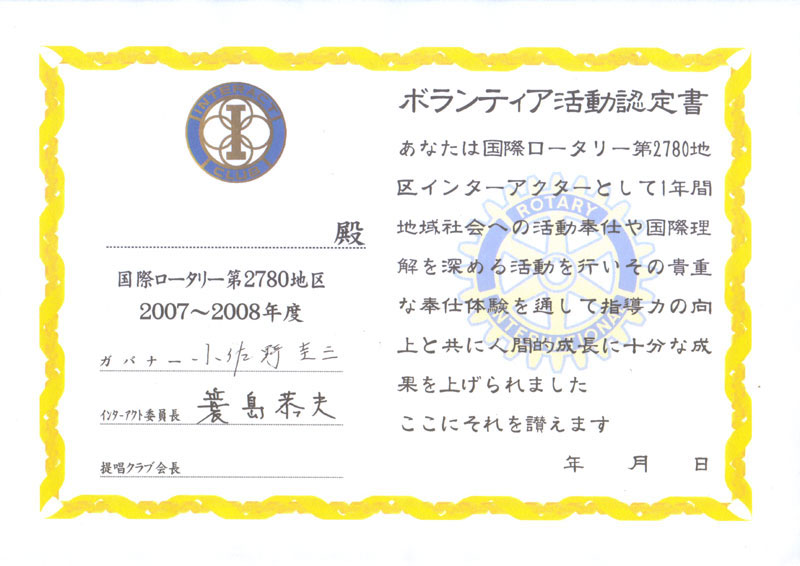 INTERACT
CLUB
殿
国際ロータリー第2780地区
2007～2008年度
ガバナー 小佐野圭三
インターアクト委員長 簑島恭夫
提唱クラブ会長
ボランティア活動認定書
あなたは国際ロータリー第2780地
区インターアクターとして1年間
地域社会への活動奉仕や国際理
解を深める活動を行いその貴重
な奉仕体験を通して指導力の向
上と共に人間的成長に十分な成
果を上げられました
ここにそれを讃えます
年 月 日
ROTARY
INTERNATIONAL